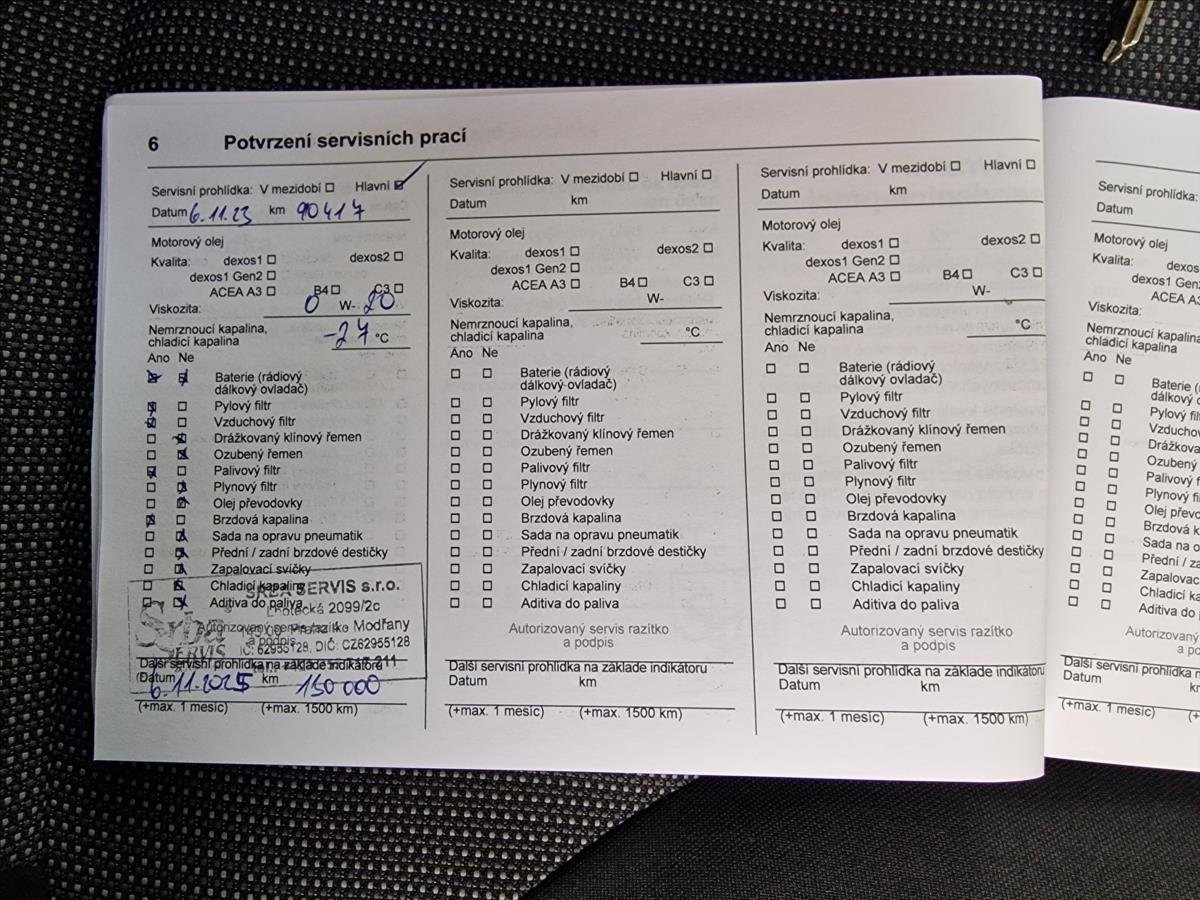 6 Potvrzení servisních prací
Servisní prohlídka: V mezidobí Hlavní
Datum 6.11.23 km 90417
Motorový olej
Kvalita: dexos1 dexos2
dexos1 Gen2
ACEA A3 B4 C3
Viskozita: 0 W- 20
Nemrznoucí kapalina,
chladicí kapalina -27 °C
Ano Ne
Baterie (rádiový
dálkový ovladač)
Pylový filtr
Vzduchový filtr
Drážkovaný klínový řemen
Ozubený řemen
Palivový filtr
Plynový filtr
Olej převodovky
Brzdová kapalina
Sada na opravu pneumatik
Přední / zadní brzdové destičky
Zapalovací svíčky
Chladicí kapaliny
Aditiva do paliva
SRBA SERVIS s.r.o.
Lhotecká 2099/2c
143 00 Praha Modřany
IČ: 62955128, DIČ: CZ62955128
Srba
SERVIS
Autorizovaný servis razítko
a podpis
Další servisní prohlídka na základe indikátoru
Datum 6.11.2025 km 150 000
(+max. 1 mesic) (+max. 1500 km)
Servisní prohlídka: V mezidobí Hlavní
Datum km
Motorový olej
Kvalita: dexos1 dexos2
dexos1 Gen2
ACEA A3 B4 C3
Viskozita: W-
Nemrznoucí kapalina,
chladicí kapalina °C
Ano Ne
Baterie (rádiový
dálkový ovladač)
Pylový filtr
Vzduchový filtr
Drážkovaný klínový řemen
Ozubený řemen
Palivový filtr
Plynový filtr
Olej převodovky
Brzdová kapalina
Sada na opravu pneumatik
Přední / zadní brzdové destičky
Zapalovací svíčky
Chladicí kapaliny
Aditiva do paliva
Autorizovaný servis razítko
a podpis
Další servisní prohlídka na základe indikátoru
Datum km
(+max. 1 mesic) (+max. 1500 km)
Servisní prohlídka: V mezidobí Hlavní
Datum km
Motorový olej
Kvalita: dexos1 dexos2
dexos1 Gen2
ACEA A3 B4 C3
Viskozita: W-
Nemrznoucí kapalina,
chladicí kapalina °C
Ano Ne
Baterie (rádiový
dálkový ovladač)
Pylový filtr
Vzduchový filtr
Drážkovaný klínový řemen
Ozubený řemen
Palivový filtr
Plynový filtr
Olej převodovky
Brzdová kapalina
Sada na opravu pneumatik
Přední / zadní brzdové destičky
Zapalovací svíčky
Chladicí kapaliny
Aditiva do paliva
Autorizovaný servis razítko
a podpis
Další servisní prohlídka na základe indikátoru
Datum km
(+max. 1 mesic) (+max. 1500 km)
Servisní prohlídka:
Datum
Motorový olej
Kvalita: dexos
dexos1 Gen2
ACEA A3
Viskozita:
Nemrznoucí kapalina
chladicí kapalina
Ano Ne
Baterie (r
dálkový o
Pylový filt
Vzduchov
Drážkova
Ozubený
Palivový f
Plynový f
Olej převo
Brzdová k
Sada na o
Přední / z
Zapalovac
Chladicí ka
Aditiva do
Autorizovaný
a po
Další servisní prohlídka n
Datum k
(+max. 1 mesic) (+